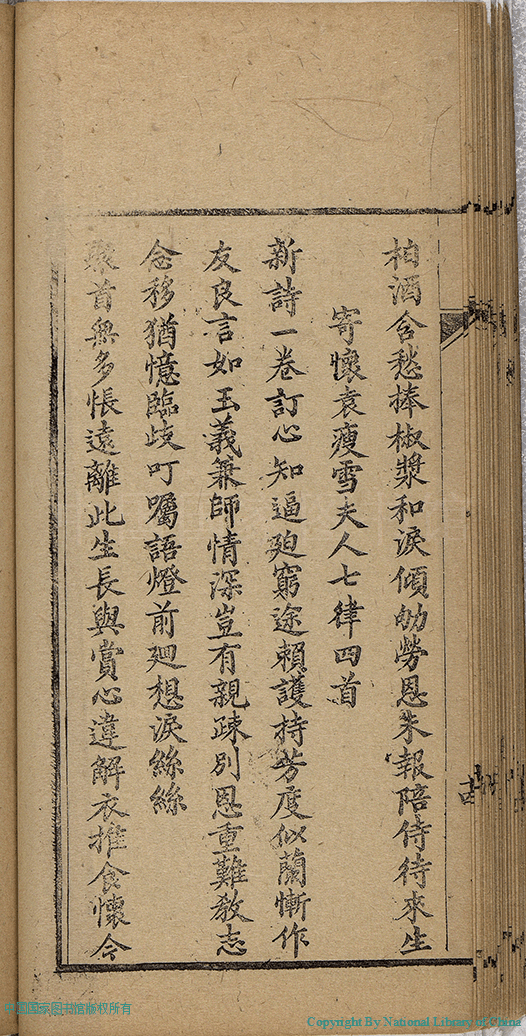 柏酒含愁捧椒漿和淚傾劬勞恩未報陪侍待來生
寄懷袁瘦雪夫人七律四首
新詩一卷訂心知逼廹窮途賴護持芳度似蘭慚作
友良言如玉義兼師情深豈有親疎別恩重難教志
念移猶憶臨歧叮囑語燈前廻想淚絲絲
聚首無多悵遠離此生長與賞心違解衣推食懷今
中国国家图书馆版权所有
Copyright By National Library of China